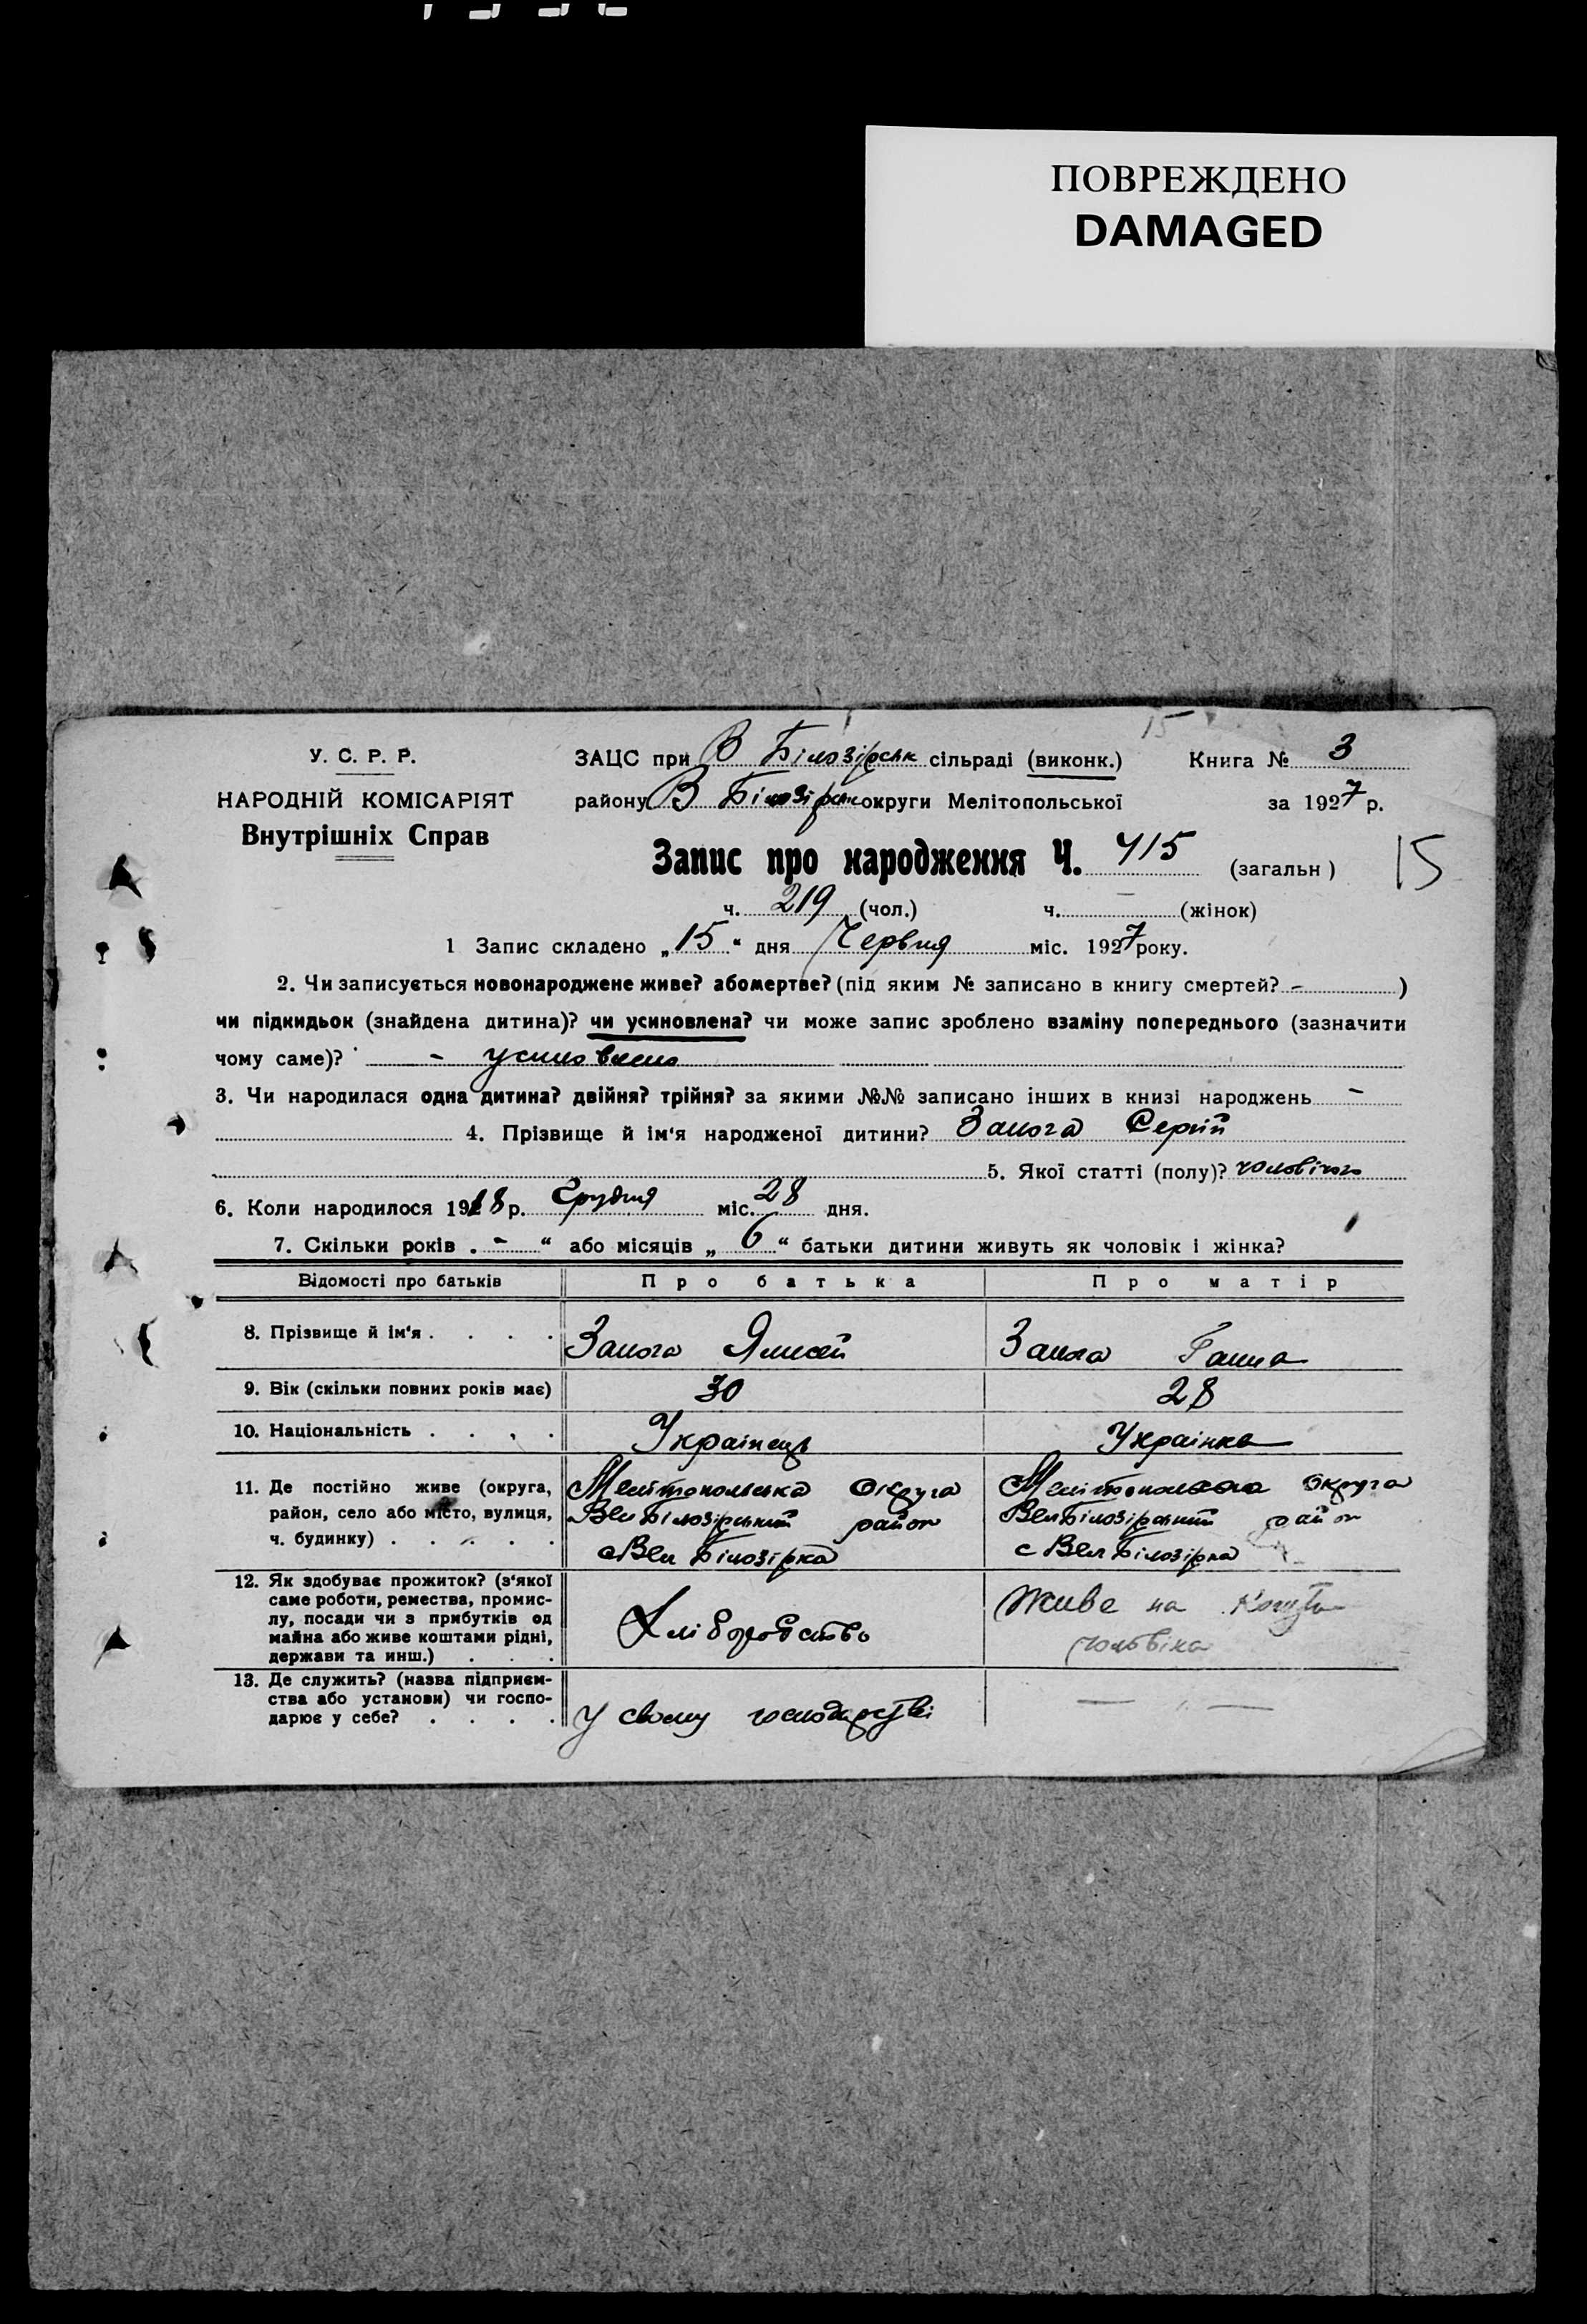 ПОВРЕЖДЕНО
DAMAGED
15
У. С. Р. Р.
НАРОДНІЙ КОМІСАРІЯТ
Внутрішніх Справ
ЗАЦС при В Білозірськ сільраді (виконк.) Книга № 3
району В Білозірськ округи Мелітопольської за 1927 р.
Запис про народження Ч. 415 (загальн)
15
ч. 219 (чол.) ч. — (жінок)
1 Запис складено „15“ дня Червня міс. 1927 року.
2. Чи записується новонароджене живе? абомертве? (під яким № записано в книгу смертей? - )
чи підкидьок (знайдена дитина)? чи усиновлена? чи може запис зроблено взаміну попереднього (зазначити
чому саме)? - усиновлено
3. Чи народилася одна дитина? двійня? трійня? за якими №№ записано інших в книзі народжень -
4. Прізвище й ім'я народженої дитини? Замога Сергій
5. Якої статті (полу)? чоловічого
6. Коли народилося 1918 р. Грудня міс. 28 дня.
7. Скільки років „ - “ або місяців „ 6 “ батьки дитини живуть як чоловік і жінка?
Відомості про батьків Про батька Про матір
8. Прізвище й ім'я . . . . Замога Замога Ганна
9. Вік (скільки повних років має) 30 28
10. Національність . . . . Українець Українка
11. Де постійно живе (округа, Мелітопольська округа Мелітопольська округа
район, село або місто, вулиця, Вел Білозірський район Вел Білозірський район
ч. будинку) . . . . . с Вел Білозірка с Вел Білозірка
12. Як здобуває прожиток? (з'якої
саме роботи, ремества, промис-
лу, посади чи з прибутків од
майна або живе коштами рідні,
держави та инш.) . . .
Хліборобство
Живе на кошти
чоловіка
13. Де служить? (назва підприєм-
ства або установи) чи госпо-
дарює у себе? . . . .
У свому господарстві
— —